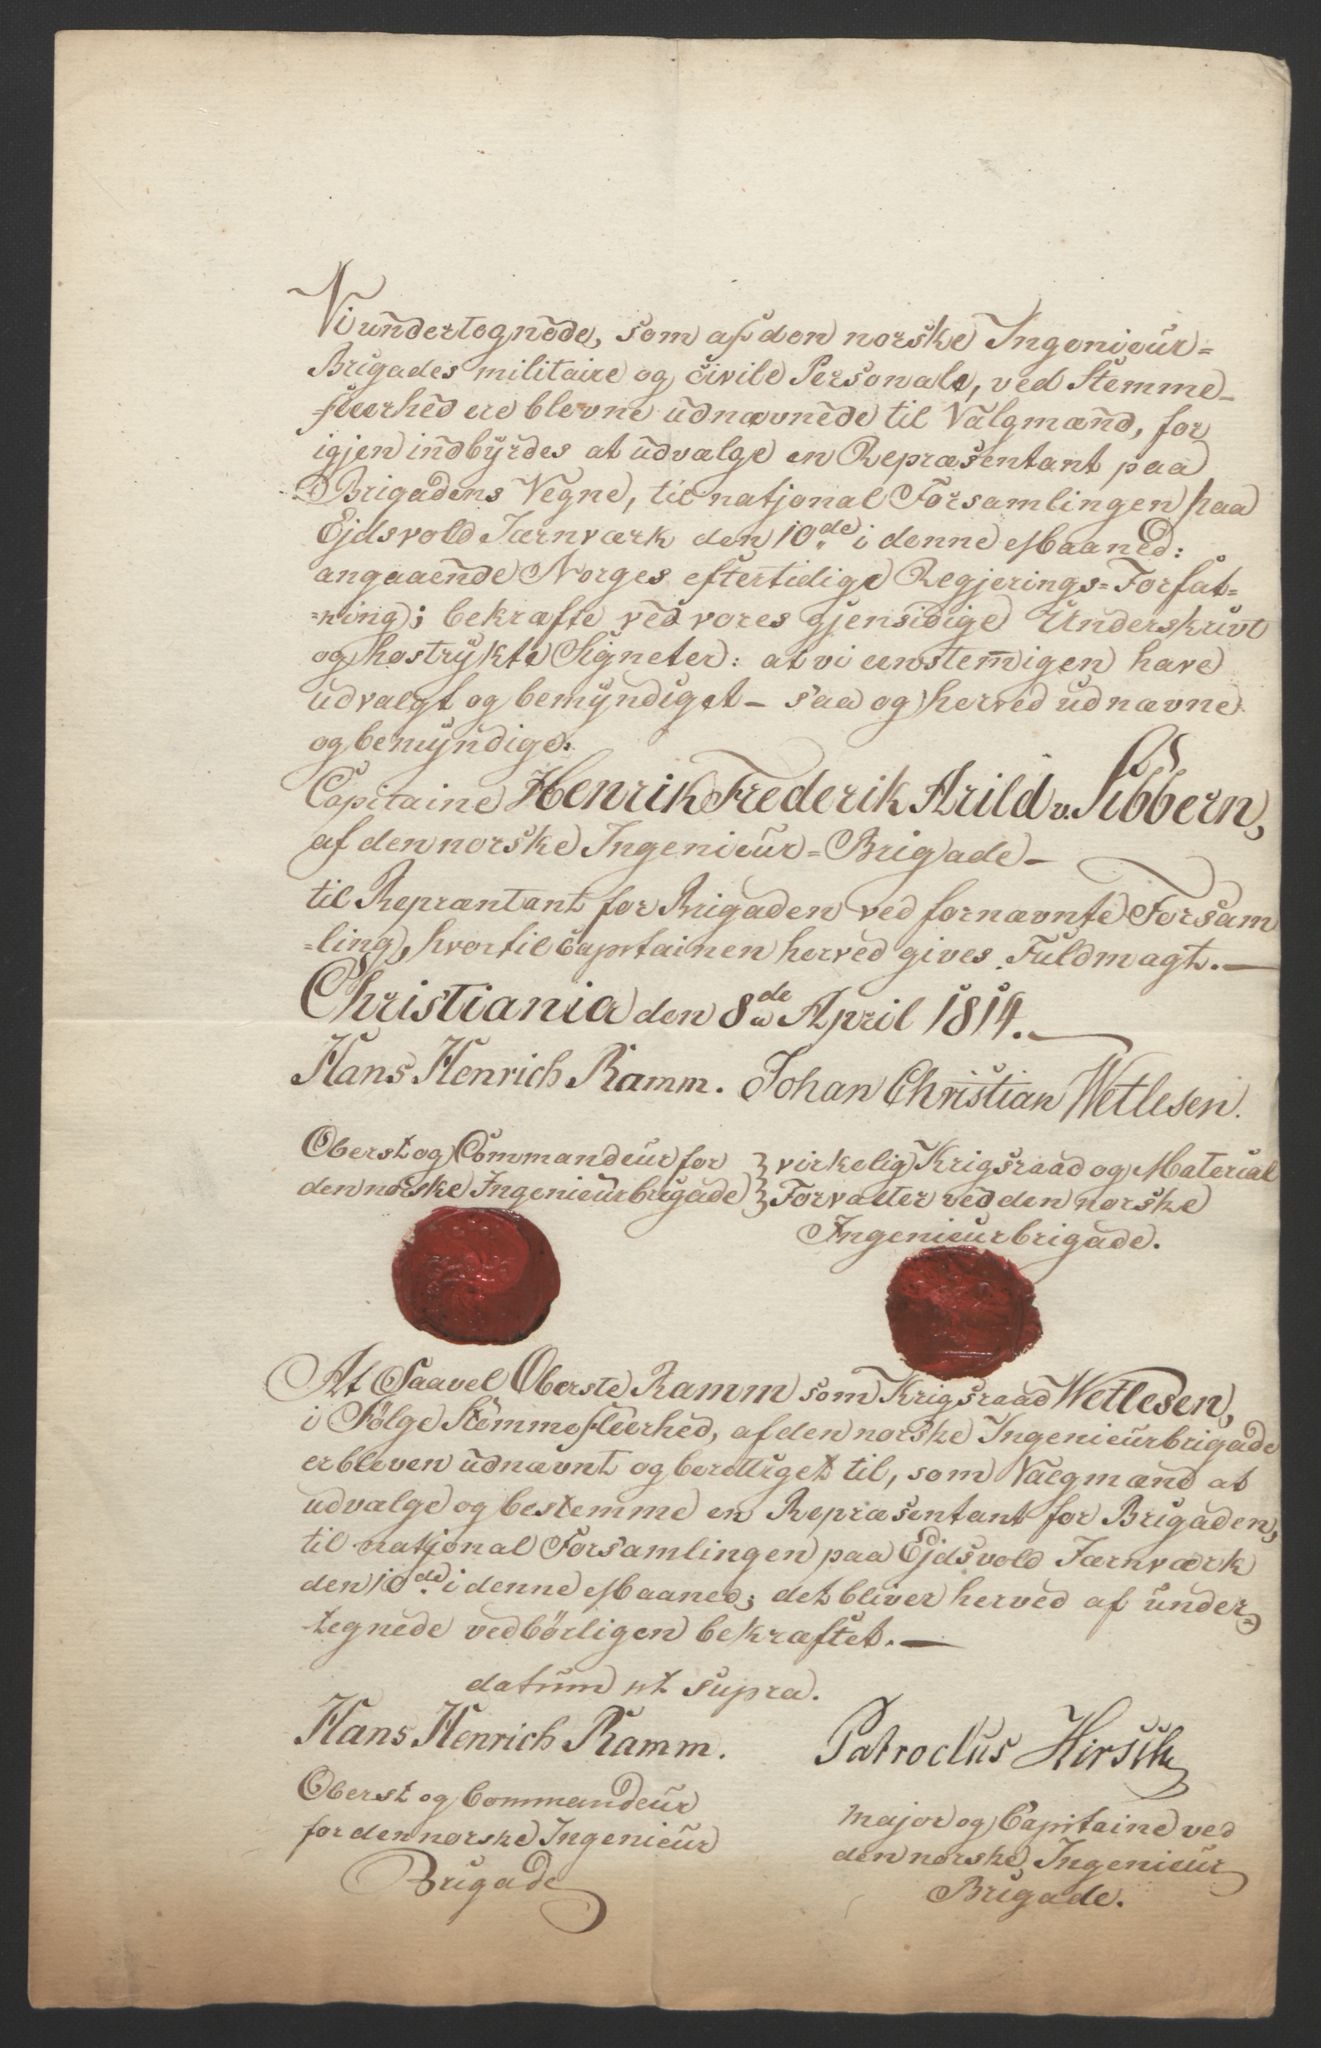 Vi undertegnede, som af den norske Ingenieur=
Brigades militaire og civile Personale, ved Stemme-
fleerhed ere blevne udnævnede til Valgmænd, for
igjen indbyrdes at udvælge en Repræsentant paa
Brigadens Vegne, til natjonal Forsamlingen paa
Ejdsvold Jærnværk den 10de i denne Maaned:
angaaende Norges eftertidige Regjerings=Forfat=
=ning; bekræfte ved vores gjensidige Underskrivt
og hostrykte Signeter: at vi eenstemigen have
udvalgt og bemyndiget - saa og herved udnævne
og bemyndige:
Capitaine Henrik Frederik Arild v. Sibbern,
af den norske Ingenieur=Brigade-
til Repræntant for Brigaden ved fornævnte Forsam
=ling, hvortil Capitainen herved gives Fuldmagt.-
Christiania den 8de April 1814.
Hans Henrich Ramm. Johan Christian Wetlesen.
Oberst og Commandeur for } virkelig Krigsraad og Material
den norske Ingenieurbrigade } Forvalter ved den norske
Ingenieurbrigade.
At Saavel Oberste Ramm som Krigsraad Wetlesen,
i Følge Stemmefleerhed, af den norske Ingenieurbrigade
er bleven udnævnt og berettiget til, som Valgmænd at
udvælge og bestemme en Repræsentant for Brigaden,
til natjonal Forsamlingen paa Ejdsvold Jærnværk
den 10de i denne Maaned; det bliver herved af under=
-tegnede vedbørligen bekræftet.-
datum ut supra.
Hans Henrich Ramm. Patroclus Hirsch
Oberst og Commandeur
for den norske Ingenieur
Brigade
Major og Capitaine ved
den norske Ingenieur
Brigade.